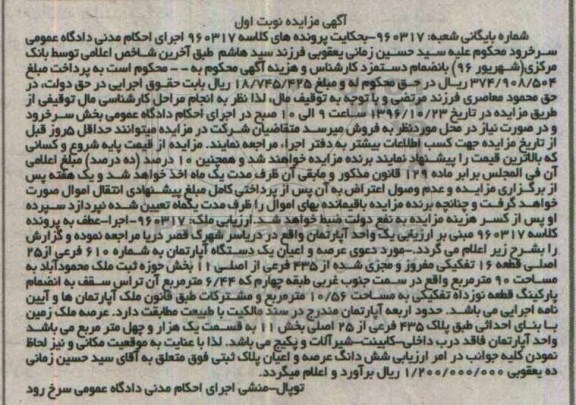 آگهی مزایده نوبت اول
شماره بایگانی شعبه: ۹۶۰۳۱۷-بحکایت پرونده های کلاسه ۹۶۰۳۱۷ اجرای احکام مدنی دادگاه عمومی
سرخرود محکوم علیه سید حسین زمانی یعقوبی فرزند سید هاشم طبق آخرین شاخص اعلامی توسط بانک
مرکزی(شهریور ۹۶) بانضمام دستمزد کارشناس و هزینه آگهی محکوم به - - محکوم است به پرداخت مبلغ
۳۷۴/۹۰۸/۵۰۴ ریال در حق محکوم له و مبلغ ۱۸/۷۴۵/۴۲۵ ریال بابت حقوق اجرایی در حق دولت، در
حق محمود معاصری فرزند مرتضی و با توجه به توقیف مال، لذا نظر به انجام مراحل کارشناسی مال توقیفی از
طریق مزایده در تاریخ ۱۳۹۶/۱۰/۲۳ ساعت ۹ الی ۱۰ صبح در اجرای احکام دادگاه عمومی بخش سرخرود
و در صورت نیاز در محل موردنظر به فروش میرسد متقاضیان شرکت در مزایده میتوانند حداقل ۵روز قبل
از تاریخ مزایده جهت کسب اطلاعات بیشتر به دفتر اجرا، مراجعه نمایند. مزایده از قیمت پایه شروع و کسانی
که بالاترین قیمت را پیشنهاد نمایند برنده مزایده خواهند شد و همچنین ۱۰ درصد (ده درصد) مبلغ اعلامی
آن فی المجلس برابر ماده ۱۲۹ قانون مذکور و مابقی آن ظرف مدت یک ماه اخذ خواهد شد و یک هفته پس
از برگزاری مزایده و عدم وصول اعتراض به آن پس از پرداختی کامل مبلغ پیشنهادی انتقال اموال صورت
خواهد گرفت و چنانچه برنده مزایده باقیمانده بهای اموال را ظرف مدت یکماه تعیین شده نپردازد سپرده
او پس از کسر هزینه مزایده به نفع دولت ضبط خواهد شد. ارزیابی ملک: ۹۶۰۳۱۷-اجرا-عطف به پرونده
کلاسه ۹۶۰۳۱۷ مبنی بر ارزیابی یک واحد آپارتمان واقع در دریاسر شهرک قصر دریا مراجعه نموده و گزارش
را بشرح زیر اعلام می گردد.-مورد دعوی عرصه و اعیان یک دستگاه آپارتمان به شماره ۶۱۰ فرعی از۲۵
اصلی قطعه ۱۶ تفکیکی مفروز و مجزی شده از ۴۳۵ فرعی از اصلی ۱۱ بخش حوزه ثبت ملک محمودآباد به
مساحت ۹۰ مترمربع واقع در سمت جنوب غربی طبقه چهارم که ۶/۴۴ مترمربع آن تراس سقف به انضمام
پارکینگ قطعه نوزداه تفکیکی به مساحت ۱۰/۵۶ مترمربع و مشترکات طبق قانون ملک آپارتمان ها و آیین
نامه اجرایی می باشد. حدود اربعه آپارتمان مندرج در سند مالکیت با طبیعت مطابقت دارد. عرصه ملک زمین
با بنای احداثی طبق پلاک ۴۳۵ فرعی از ۲۵ اصلی بخش ۱۱ به قسمت یک هزار و چهل متر مربع می باشد
واحد آپارتمان فاقد درب داخلی-کابینت-شیرآلات و پکیج می باشد. لذا با عنایت به موقعیت مکانی و نیز لحاظ
نمودن کلیه جوانب در امر ارزیابی شش دانگ عرصه و اعیان پلاک ثبتی فوق متعلق به آقای سید حسین زمانی
ده یعقوبی ۱/۲۰۰/۰۰۰/۰۰۰ ریال برآورد و اعلام میگردد.
توپال-منشی اجرای احکام مدنی دادگاه عمومی سرخ رود